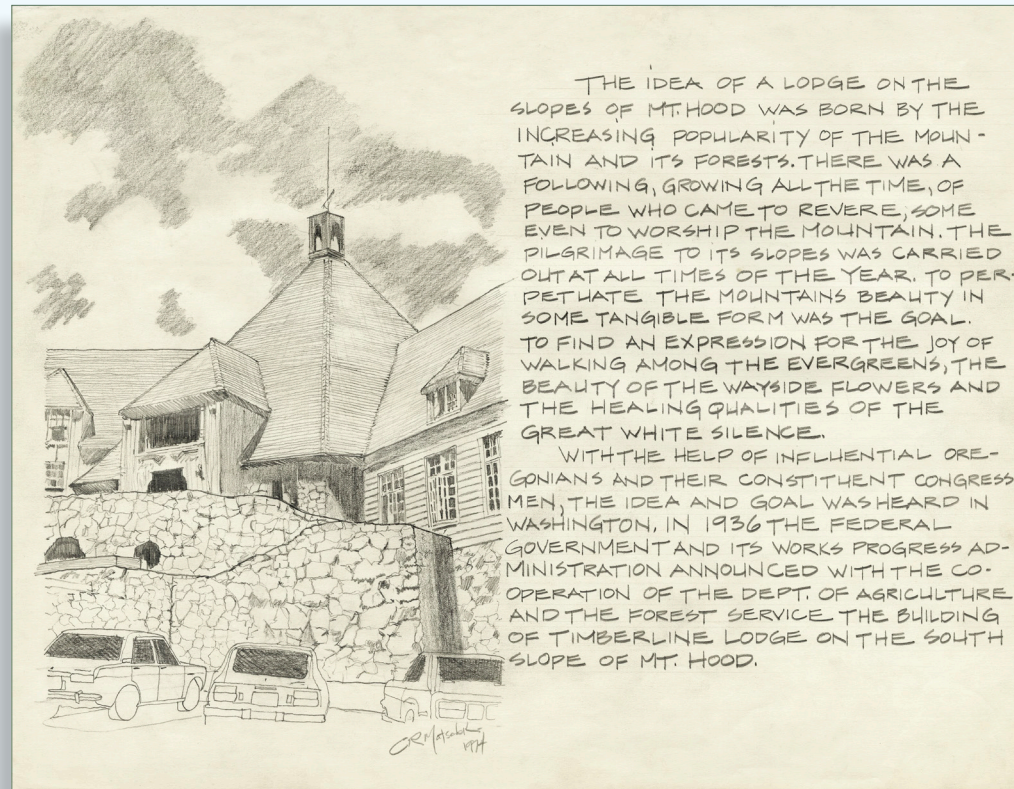 THE IDEA OF A LODGE ON THE
SLOPES OF MT. HOOD WAS BORN BY THE
INCREASING POPULARITY OF THE MOUN-
TAIN AND ITS FORESTS. THERE WAS A
FOLLOWING, GROWING ALL THE TIME, OF
PEOPLE WHO CAME TO REVERE, SOME
EVEN TO WORSHIP THE MOUNTAIN. THE
PILGRIMAGE TO ITS SLOPES WAS CARRIED
OUT AT ALL TIMES OF THE YEAR. TO PER-
PETUATE THE MOUNTAINS BEAUTY IN
SOME TANGIBLE FORM WAS THE GOAL.
TO FIND AN EXPRESSION FOR THE JOY OF
WALKING AMONG THE EVERGREENS, THE
BEAUTY OF THE WAYSIDE FLOWERS AND
THE HEALING QUALITIES OF THE
GREAT WHITE SILENCE.
WITH THE HELP OF INFLUENTIAL ORE-
GONIANS AND THEIR CONSTITUENT CONGRESS
MEN, THE IDEA AND GOAL WAS HEARD IN
WASHINGTON. IN 1936 THE FEDERAL
GOVERNMENT AND ITS WORKS PROGRESS AD-
MINISTRATION ANNOUNCED WITH THE CO-
OPERATION OF THE DEPT. OF AGRICULTURE
AND THE FOREST SERVICE THE BUILDING
OF TIMBERLINE LODGE ON THE SOUTH
SLOPE OF MT. HOOD.
1974